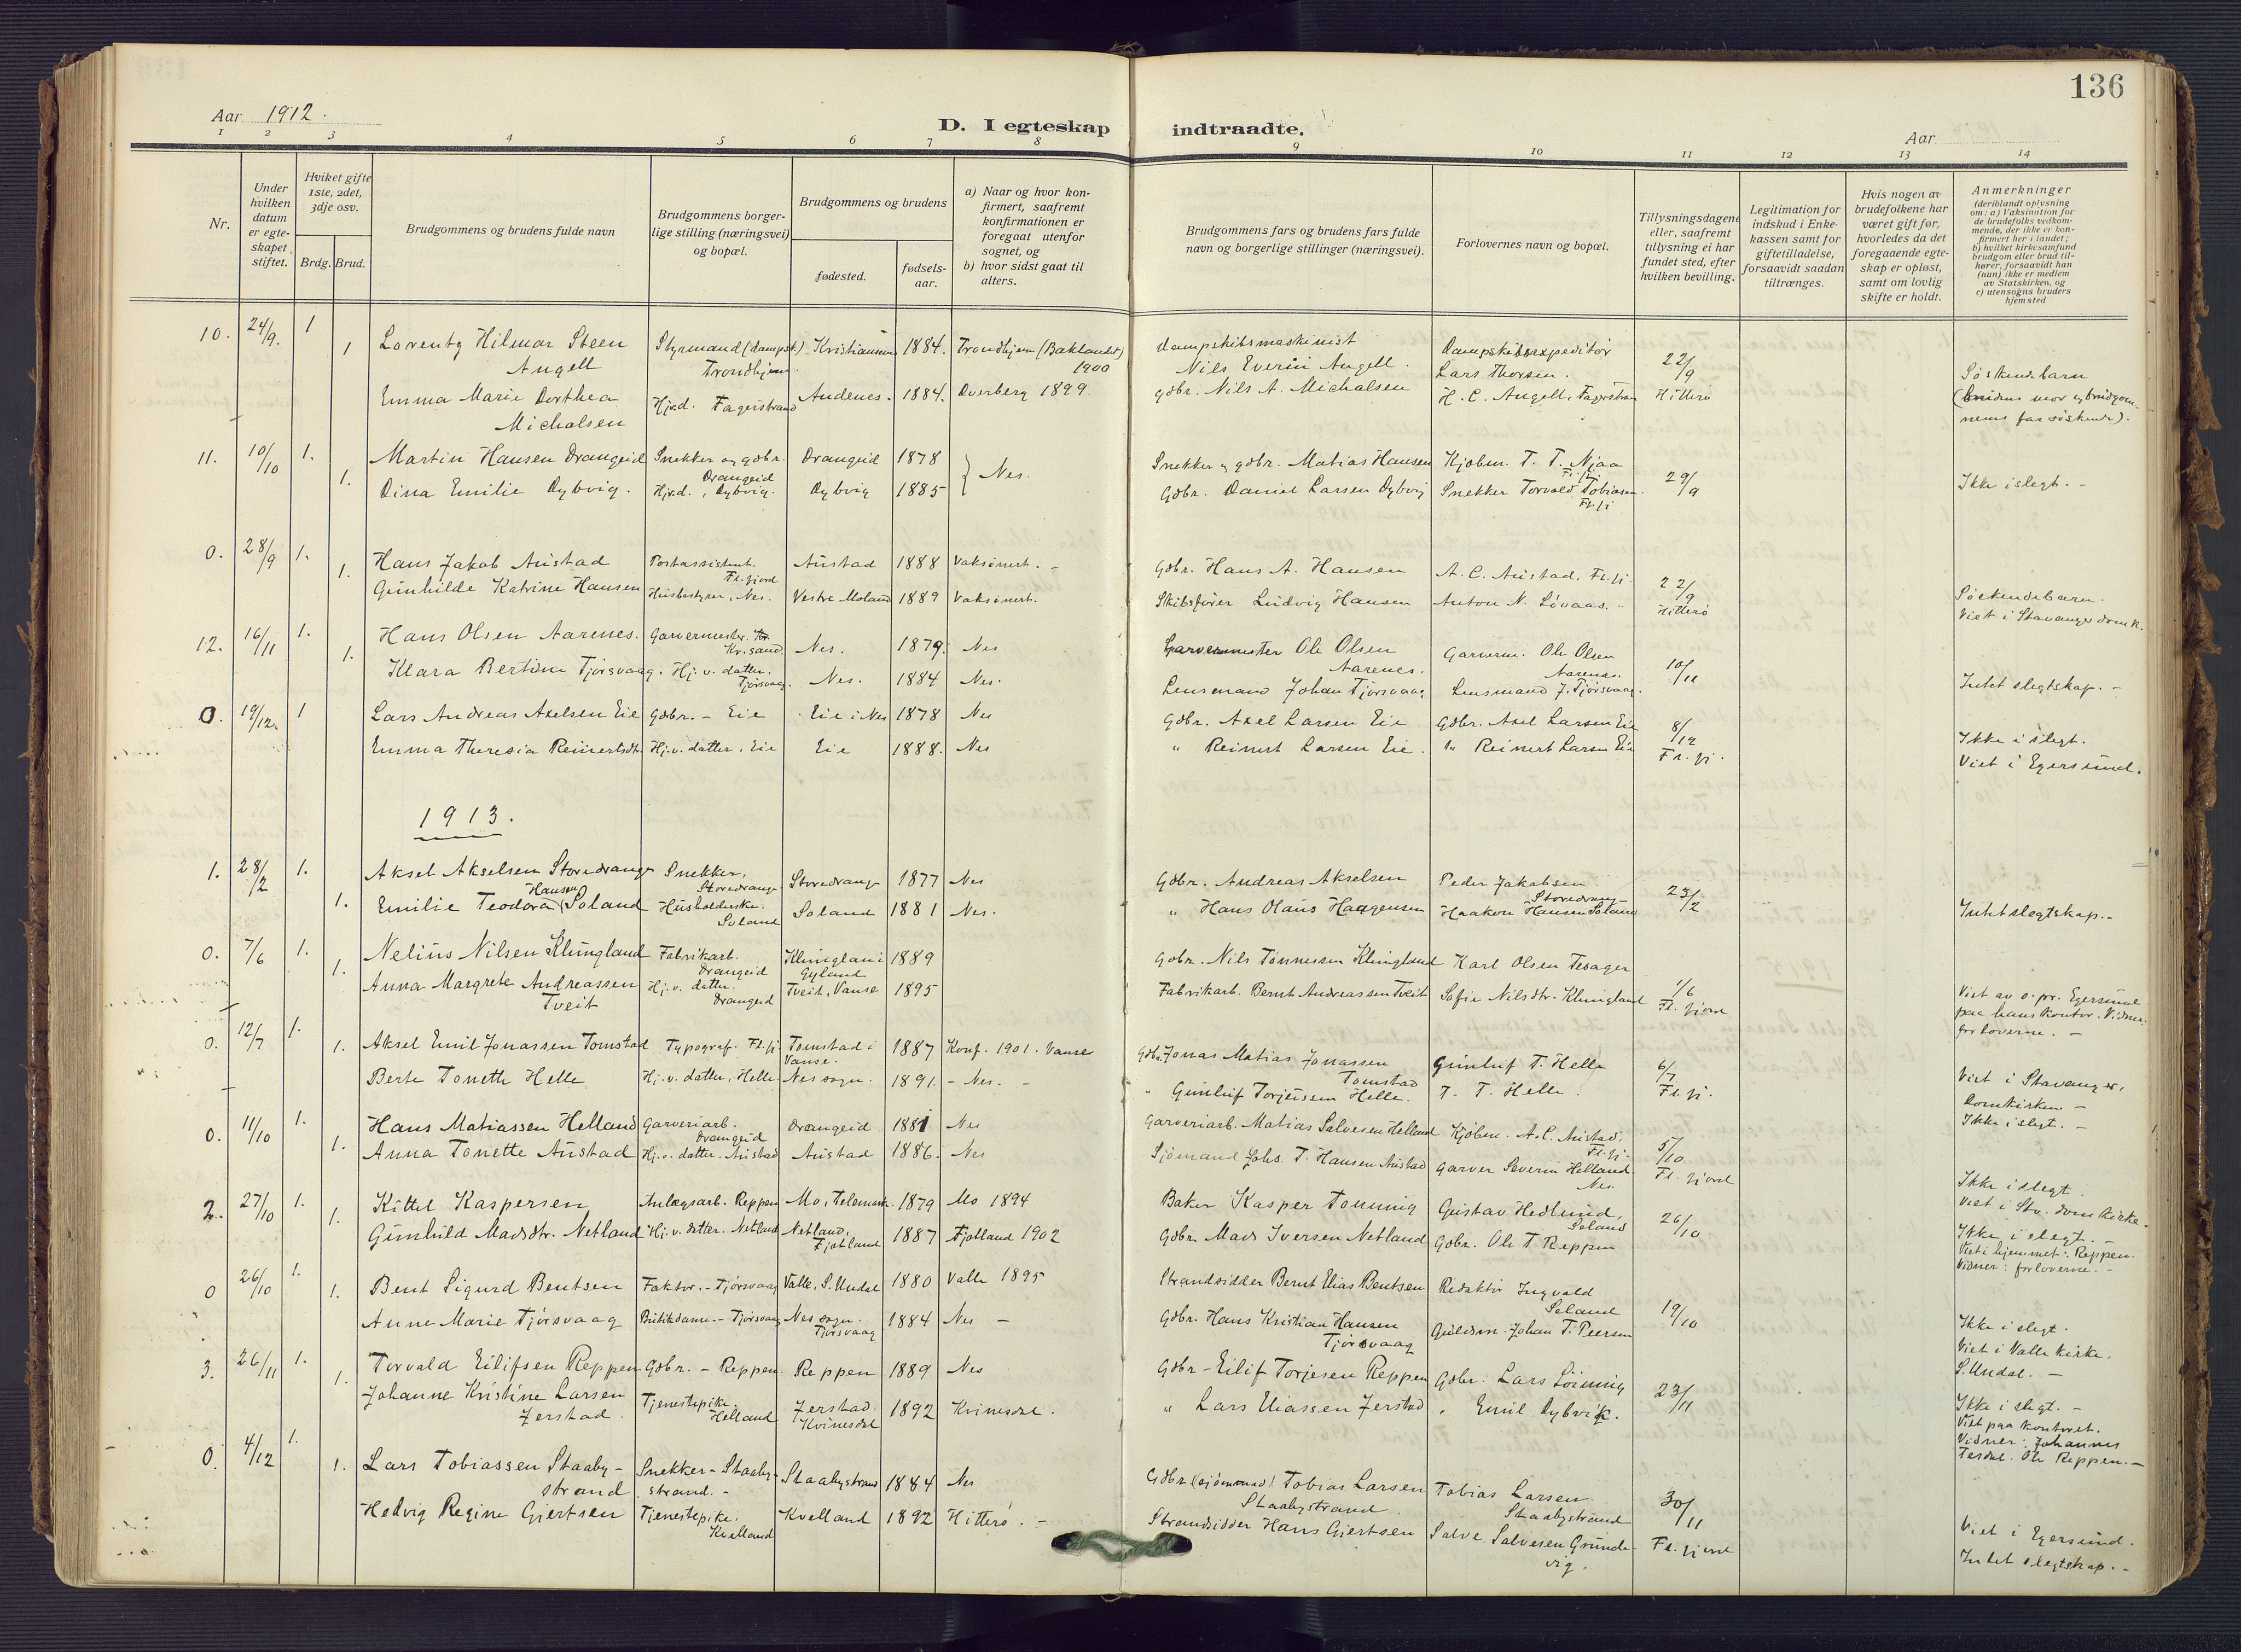 136
Aar 1912.
D. I egteskap indtraadte.
Aar
1 2 3 4 5 6 7 8 9 10 11 12 13 14
Nr.
Under hvilken datum er egteskapet stiftet.
Hviket gifte 1ste, 2det, 3dje osv.
Brdg. Brud.
Brudgommens og brudens fulde navn
Brudgommens borgerlige stilling (næringsvei) og bopæl.
Brudgommens og brudens
fødested.
fødselsaar.
a) Naar og hvor konfirmert, saafremt konfirmationen er foregaat utenfor sognet, og
b) hvor sidst gaat til alters.
Brudgommens fars og brudens fars fulde navn og borgerlige stillinger (næringsvei).
Forlovernes navn og bopæl.
Tillysningsdagene eller, saafremt tillysning ei har fundet sted, efter hvilken bevilling.
Legitimation for indskud i Enkekassen samt for giftetilladelse, forsaavidt saadan tiltrænges.
Hvis nogen av brudefolkene har været gift før, hvorledes da det foregaaende egteskap er opløst, samt om lovlig skifte er holdt.
Anmerkninger (deriblandt oplysning om: a) Vaksination for de brudefolks vedkommende, der ikke er konfirmert her i landet; b) hvilket kirkesamfund brudgom eller brud tilhører, forsaavidt han (hun) ikke er medlem av Statskirken, og c) utensogns bruders hjemsted
10. 24/9. 1 Lorentz Hilmar Steen Angell Styrmand (dampsk.) Trondhjem. Kristiansund 1884. Trondhjem (Baklandet) 1900 Dampskibsmaskinist Nils Everin Angell. Dampskibsexpeditør Lars Thorsen. 22/9 Hitterø
1 Emma Marie Dorthea Michalsen Hj.d. Fagerstrand Andenes. 1884. Dverberg 1899. Gdbr. Nils A. Michalsen H. C. Angell, Fagerstran Søskendebarn (brudens mor og brudgommens far søskende).
11. 10/10 1. Martin Hansen Drangeid Snekker og gdbr. Drangeid Drangeid 1878 Nes. Snekker og gdbr. Matias Hansen Kjøbm. T. T. Njaa Fl.fj. 29/9
1. Dina Emilie Dybvig. Hj.d., Dybvig. Dybvig 1885 Gdbr. Daniel Larsen Dybvig Snekker Torvald Tobiasen. Fl.fj Ikke i slegt. -
0. 28/9 1. Hans Jakob Austad Postassistent. Fl.fjord Austad 1888 Vaksinert. - Gdbr. Hans A. Hansen A. C. Austad, Fl.fj. 22/9 Hitterø
1. Gunhilde Katrine Hansen Husbestyrer, Nes. Vestre Moland 1889 Vaksinert. Skibsfører Ludvig Hansen Anton N. Løvaas. " Søskendebarn. Viet i Stavanger domk.
12. 16/11 1. Hans Olsen Aarenes. Garvermester. Kr.sand. Nes. 1879. Nes Garvermester Ole Olsen Aarenes. Garverm. Ole Olsen Aarenes. 10/11
1. Klara Bertine Tjørsvaag. Hj.v. datter. Tjørsvaag. Nes. 1884 Nes. Lensmand Johan Tjørsvaag Lensmand J. Tjørsvaag. Intet slegtskap. -
0. 19/12. 1 Lars Andreas Axelsen Eie Gdbr. - Eie Eie i Nes 1878 Nes Gdbr. Axel Larsen Eie Gdbr. Axel Larsen Eie 8/12 Fl.fj.
Emma Theresia Reinertsdtr. Hj.v. datter, Eie Eie 1888. Nes " Reinert Larsen Eie. " Reinert Larsen Eie Ikke i slegt. Viet i Egersund.
1913.
1. 28/2 1. Aksel Akselsen Storedrange Snekker, Storedrange Storedrange 1877 Nes Gdbr. Andreas Akselsen Peder Jakobsen Storedrang- 23/2
1. Emilie Teodora Hansen Søland Husholderske. Søland Søland 1881 Nes. " Hans Olaus Haagensen Haakon Hansen Søland Intet slegtskap. -
0. 7/6 1. Nelius Nilsen Klungland Fabrikarb. Drangeid Klungland Gyland 1889 Gdbr. Nils Tønnessen Klungland Karl Olsen Tesager 1/6 Fl.fjord
1. Anna Margrete Andreassen Tveit Hj.v. datter. Drangeid Tveit, Vanse 1895 Fabrikarb. Bernt Andreassen Tveit Sofie Nilsdtr. Klungland Viet av s.pr. Egersund paa hans kontor. Vidner: forloverne. -
0. 12/7 1. Aksel Emil Jonassen Tomstad Typograf. Fl.fj Tomstad i Vanse. 1887 Konf. 1901. Vanse Gdbr. Jonas Matias Jonassen Tomstad Gunluf T. Helle 6/7 Fl.fj.
1. Berte Tonette Helle Hj.v. datter, Helle Nes sogn. 1891. - Nes. - " Gunluf Torjeussen Helle. T. T. Helle. Viet i Stavanger, Domkirken - Ikke i slegt. -
0. 11/10 1. Hans Matiassen Helland Garveriarb. Drangeid Drangeid 1881 Nes Garveriarb. Matias Salvesen Helland Kjøbm. A. C. Austad. Fl.fj- 5/10 Fl.fjord
1. Anna Tonette Austad Hj.v. datter. Austad Austad 1886. Nes Sjømand Johs. T. Hansen Austad Garver Severin Helland Nes. Ikke i slegt. Viet i Stv. domkirke.
2. 27/10 1. Kittel Kaspersen Anlægsarb. Reppen Mo i Telemark. 1879 Mo 1894 Baker Kasper Tonning Gustav Hedlund, Søland 26/10
1. Gunhild Madsdtr. Netland Hj.v. datter. Netland Netland, Fjotland 1887 Fjotland 1902 Gdbr. Mads Iversen Netland Gdbr. Ole T Reppen Ikke i slegt. - Viet i hjemmet: Reppen. Vidner: forloverne. -
0 26/10 1. Bent Sigurd Bentsen Faktor. - Tjørsvaag Valle, S. Undal 1880 Valle 1895 Strandsidder Bernt Elias Bentsen Redaktør Ingvald Søland 19/10
1. Anne Marie Tjørsvaag Butikdame. - Tjørsvaag Nes sogn. Tjørsvaag 1884 Nes - Gdbr. Hans Kristian Hansen Tjørsvaag Guldsm. Johan T. Peersen Ikke i slegt. Viet i Valle kirke. S. Undal. -
3. 26/11 1. Torvald Eilifsen Reppen Gdbr. - Reppen. Reppen 1889 Nes Gdbr - Eilif Torjesen Reppen Gdbr. Lars Løining 23/11
1. Johanne Kristine Larsen Jerstad. Tjenestepike. Helland Jerstad. Kvinesdal 1892 Kvinesdal. " Lars Eliassen Jerstad " Emil Dybvik. Ikke i slegt. - Viet paa kontoret. Vidner: Johannes Tesdal. Ole Reppen. -
0. 4/12 1. Lars Tobiassen Staabystrand Snekker - Staabystrand. - Staabystrand 1884 Nes Gdbr. (sjømand) Tobias Larsen Staabystrand Tobias Larsen Staabystrand 30/11 Fl.fjord
1. Hedvig Regine Gjertsen Tjenestepike. Kvelland Kvelland 1892 Hitterø. - Strandsidder Hans Gjertsen Salve Salvesen Grundevig. Viet i Egersund. Intet slegtskap. -